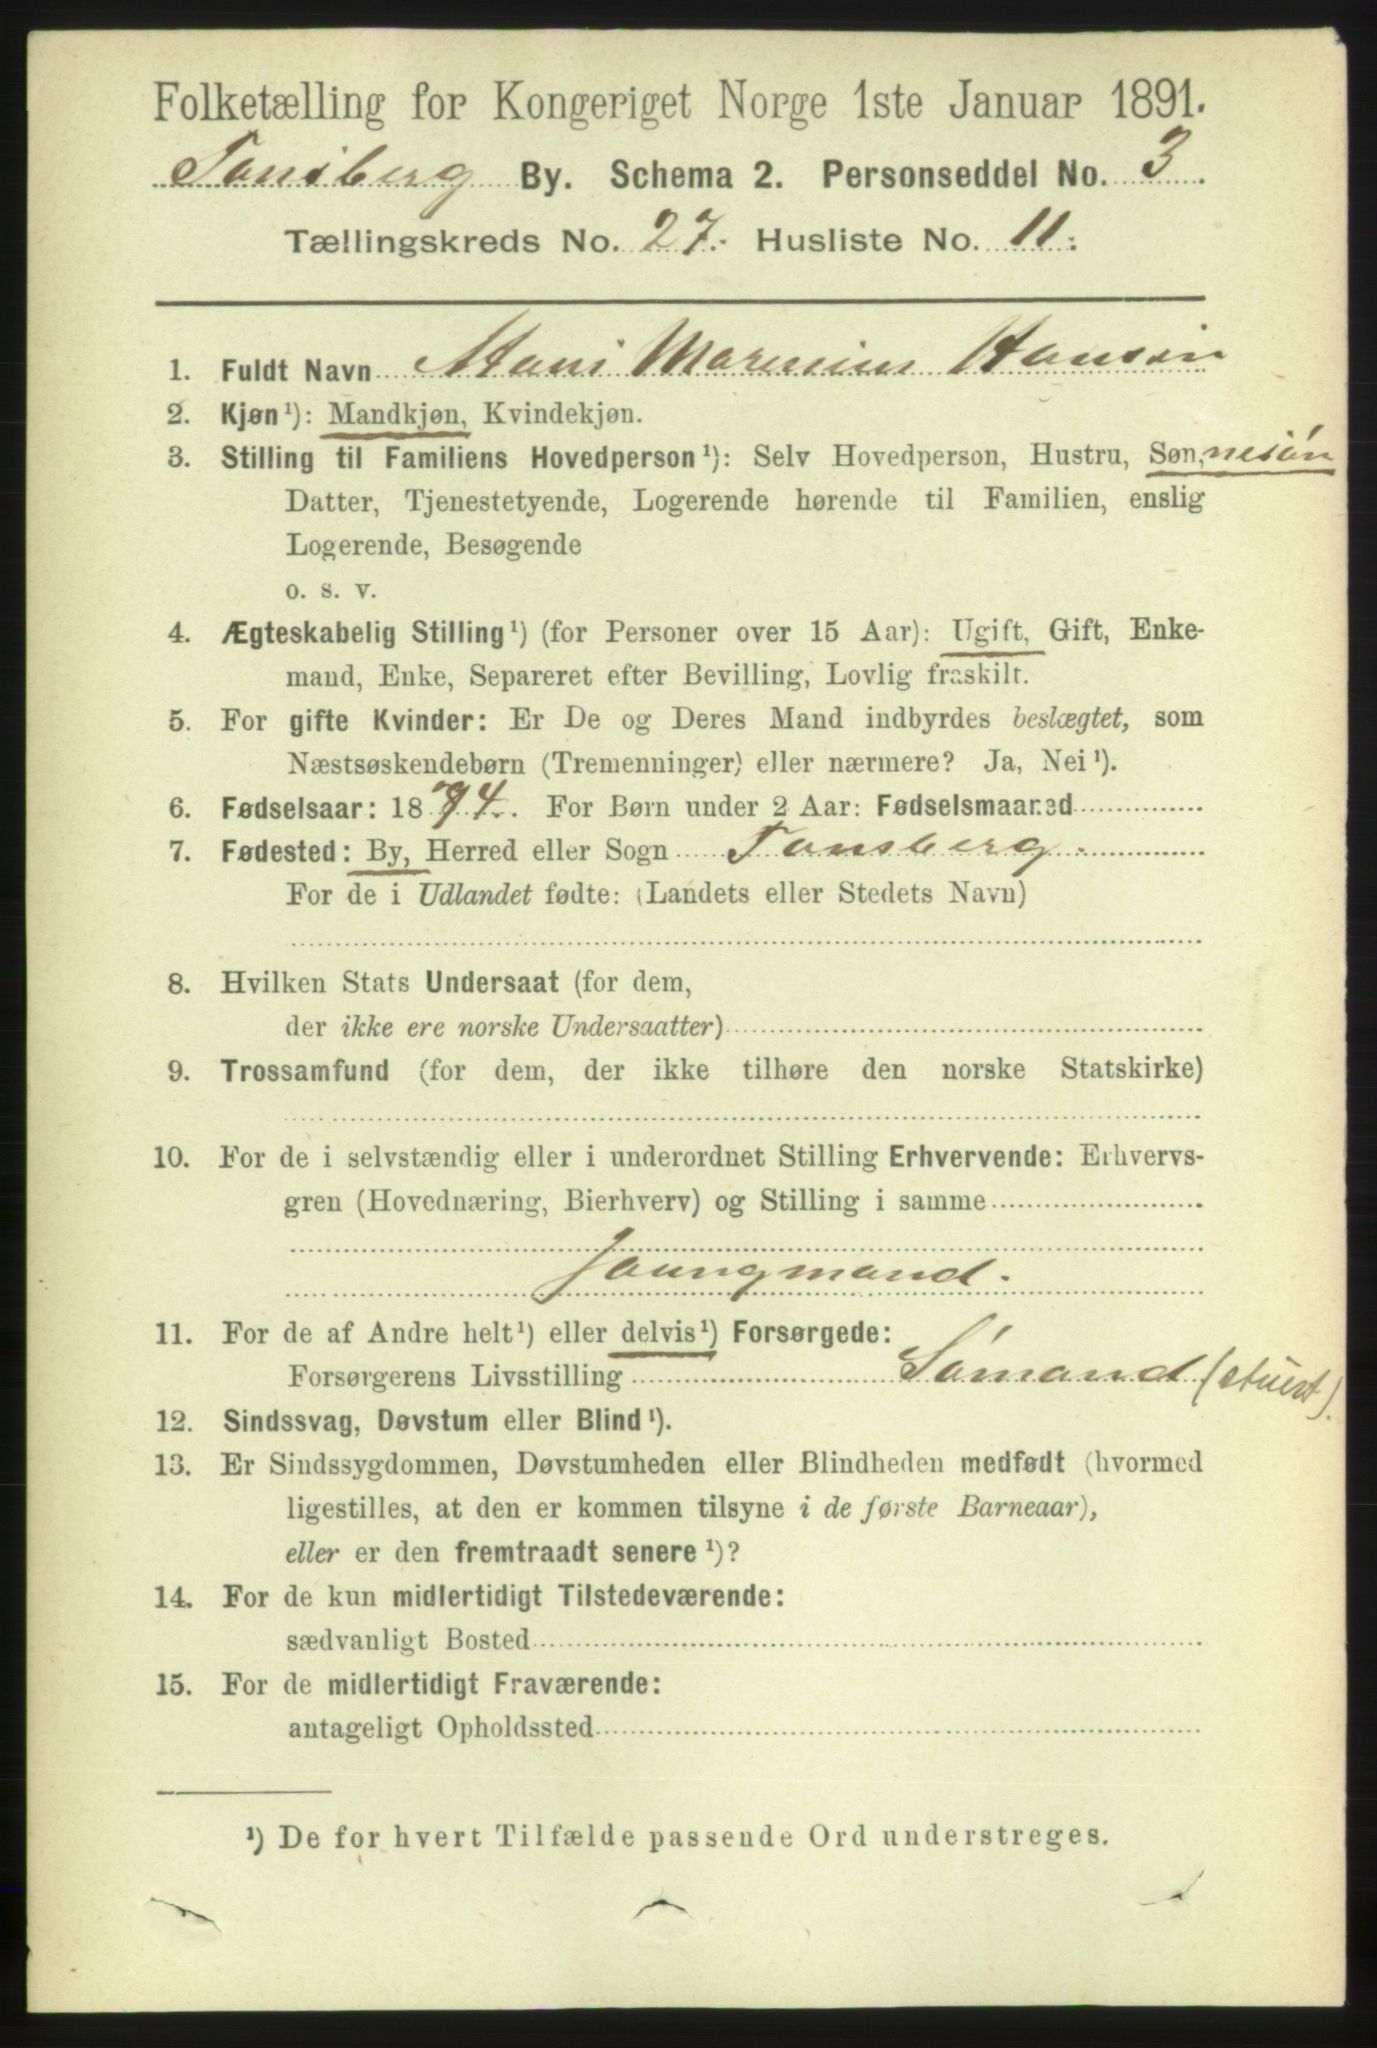 Folketælling for Kongeriget Norge 1ste Januar 1891.
Tønsberg By. Schema 2. Personseddel No. 3
Tællingskreds No. 27. Husliste No. 11.
1. Fuldt Navn Hans Marenius Hansen
2. Kjøn¹): Mandkjøn, Kvindekjøn.
3. Stilling til Familiens Hovedperson¹): Selv Hovedperson, Hustru, Søn,nesøn
Datter, Tjenestetyende, Logerende hørende til Familien, enslig
Logerende, Besøgende
o. s. v.
4. Ægteskabelig Stilling¹) (for Personer over 15 Aar): Ugift, Gift, Enke-
mand, Enke, Separeret efter Bevilling, Lovlig fraskilt.
5. For gifte Kvinder: Er De og Deres Mand indbyrdes beslægtet, som
Næstsøskendebørn (Tremenninger) eller nærmere? Ja, Nei¹).
6. Fødselsaar: 1874. For Børn under 2 Aar: Fødselsmaaned
7. Fødested: By, Herred eller Sogn Tønsberg.
For de i Udlandet fødte: (Landets eller Stedets Navn)
8. Hvilken Stats Undersaat (for dem,
der ikke ere norske Undersaatter)
9. Trossamfund (for dem, der ikke tilhøre den norske Statskirke)
10. For de i selvstændig eller i underordnet Stilling Erhvervende: Erhvervs-
gren (Hovednæring, Bierhverv) og Stilling i samme
Joungmand.
11. For de af Andre helt¹) eller delvis¹) Forsørgede:
Forsørgerens Livsstilling Sömand (stuert).
12. Sindssvag, Døvstum eller Blind¹).
13. Er Sindssygdommen, Døvstumheden eller Blindheden medfødt (hvormed
ligestilles, at den er kommen tilsyne i de første Barneaar),
eller er den fremtraadt senere¹)?
14. For de kun midlertidigt Tilstedeværende:
sædvanligt Bosted
15. For de midlertidigt Fraværende:
antageligt Opholdssted
¹) De for hvert Tilfælde passende Ord understreges.